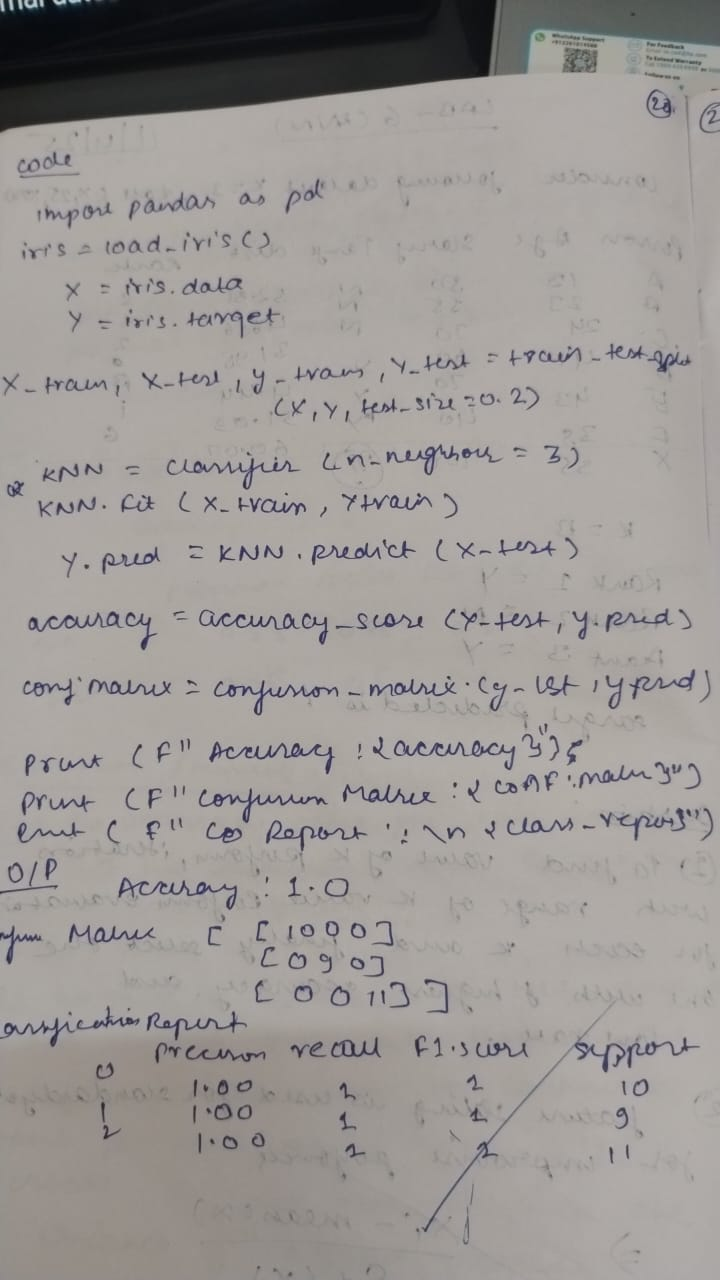 WhatsApp Support
For Feedback
To Extend Warranty
Follow us on
28
2
code
import pandas as pd
iris = load_iris()
X = iris.data
Y = iris.target
X_train, X_test, y_train, Y_test = train_test_split
(X, Y, test_size=0.2)
KNN = classifier (n-neighbour = 3)
KNN. fit (X_train, Ytrain)
Y.pred = KNN.predict (X-test)
accuracy = accuracy_score (Y-test, y.pred)
conf matrix = confusion-matrix.(y-tst, y pred)
Print (F" Accuracy : {accuracy}")
Print (F" Confusion Matrix : {conf.matrix}")
Print ( F" Report : \n {class-report}")
O/P
Accuracy : 1.0
Matrix [ [10 0 0]
[0 9 0]
[0 0 11] ]
assification Report
Precision recall F1.score support
0 1.00 1 1 10
1 1.00 1 1 9
2 1.00 1 1 11